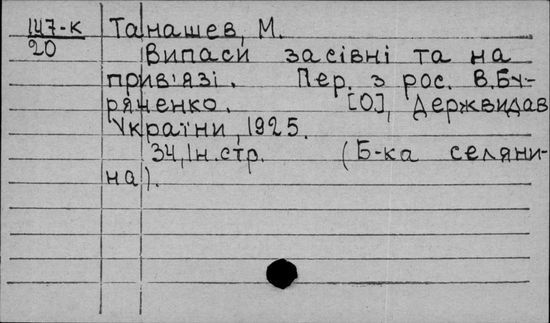 147-К Танашев, М.
20 Випаси засівні та на
прив'язі. Пер. з рос. В.Бу-
ряченко. [О], Держвидав
України, 1925.
34, Ін.стр. (Б-ка селяни-
на).